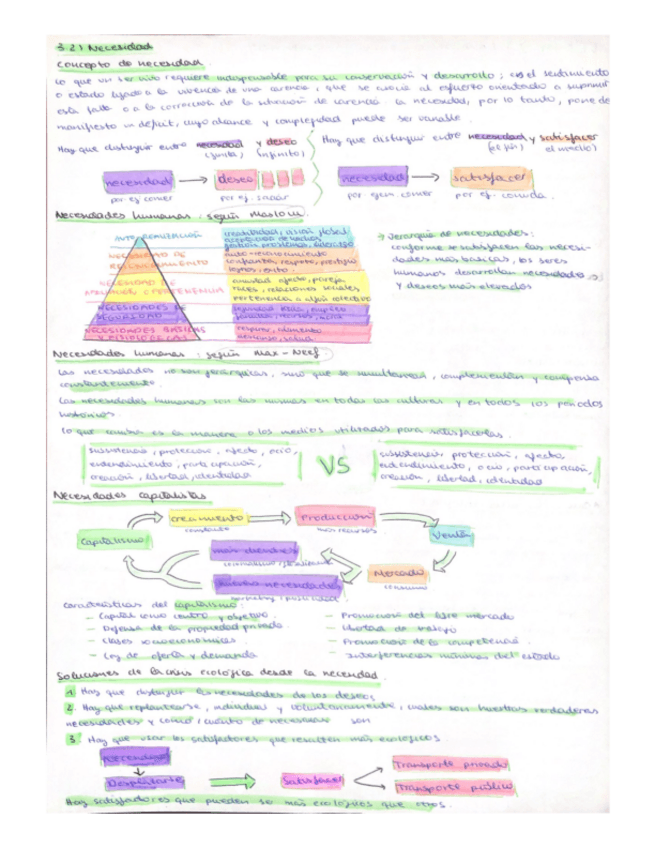 3.2.1 Necesidad
Concepto de necesidad.
Lo que un ser vivo requiere indispensable para su conservación y desarrollo; es el sentimiento
o estado ligado a la vivencia de una carencia, que se asocia al esfuerzo orientado a suprimir
esta falta o a la corrección de la situación de carencia. La necesidad, por lo tanto, pone de
manifiesto un déficit, cuyo alcance y complejidad puede ser variable.
Hay que distinguir entre necesidad y deseo
(finita) (infinito)
Hay que distinguir entre necesidad y satisfacer
(el fin) el medio)
necesidad → deseo
por ej comer por ej.
necesidad → satisfacer
por ejem. comer por ej. comida.
Necesidades humanas: según Maslow.
AUTORREALIZACIÓN
creatividad, visión global
aceptación de hechos
NECESIDAD DE
RECONOCIMIENTO
auto-reconocimiento
confianza, respeto, prestigio
logros, éxito.
NECESIDAD DE
amistad, afecto, pareja
relaciones sociales,
pertenencia a algún colectivo
NECESIDADES DE
SEGURIDAD
seguridad física, empleo
NECESIDADES BÁSICAS
Y FISIOLÓGICAS
respirar, alimento
descanso, salud
→ Jerarquía de necesidades:
conforme se satisfacen las necesi-
dades más básicas, los seres
humanos desarrollan necesidades
y deseos más elevados
Necesidades humanas: según Max-Neef
Las necesidades no son jerárquicas, sino que se simultanean, complementan y compensa
constantemente.
Las necesidades humanas son las mismas en todas las culturas y en todos los periodos
históricos.
Lo que cambia es la manera o los medios utilizados para satisfacerlas.
subsistencia, protección, afecto, ocio,
entendimiento, participación,
creación, libertad, identidad
VS
subsistencia, protección, afecto,
entendimiento, ocio, participación,
creación, libertad, identidad
Necesidades capitalistas
Capitalismo
crecimiento
constante
Producción
más recursos
Ventas
Mercado
consumo
más derechos
nuevas necesidades
Características del capitalismo:
- Capital como centro y objetivo.
- Defensa de la propiedad privada.
- Clases socioeconómicas.
- Ley de oferta y demanda
- Promoción del libre mercado
- Libertad de trabajo
- Promoción de la competencia.
- Interferencias mínimas del estado
Soluciones de la crisis ecológica desde la necesidad.
1. Hay que distinguir las necesidades de los deseos
2. Hay que replantearse, individual y voluntariamente, cuales son nuestras verdaderas
necesidades y como/cuanto de necesarias son
3. Hay que usar los satisfactores que resulten más ecológicos
Necesidad
Desplazarte
Satisfacer
Transporte privado
Transporte público
Hay satisfactores que pueden ser más ecológicos que otros.